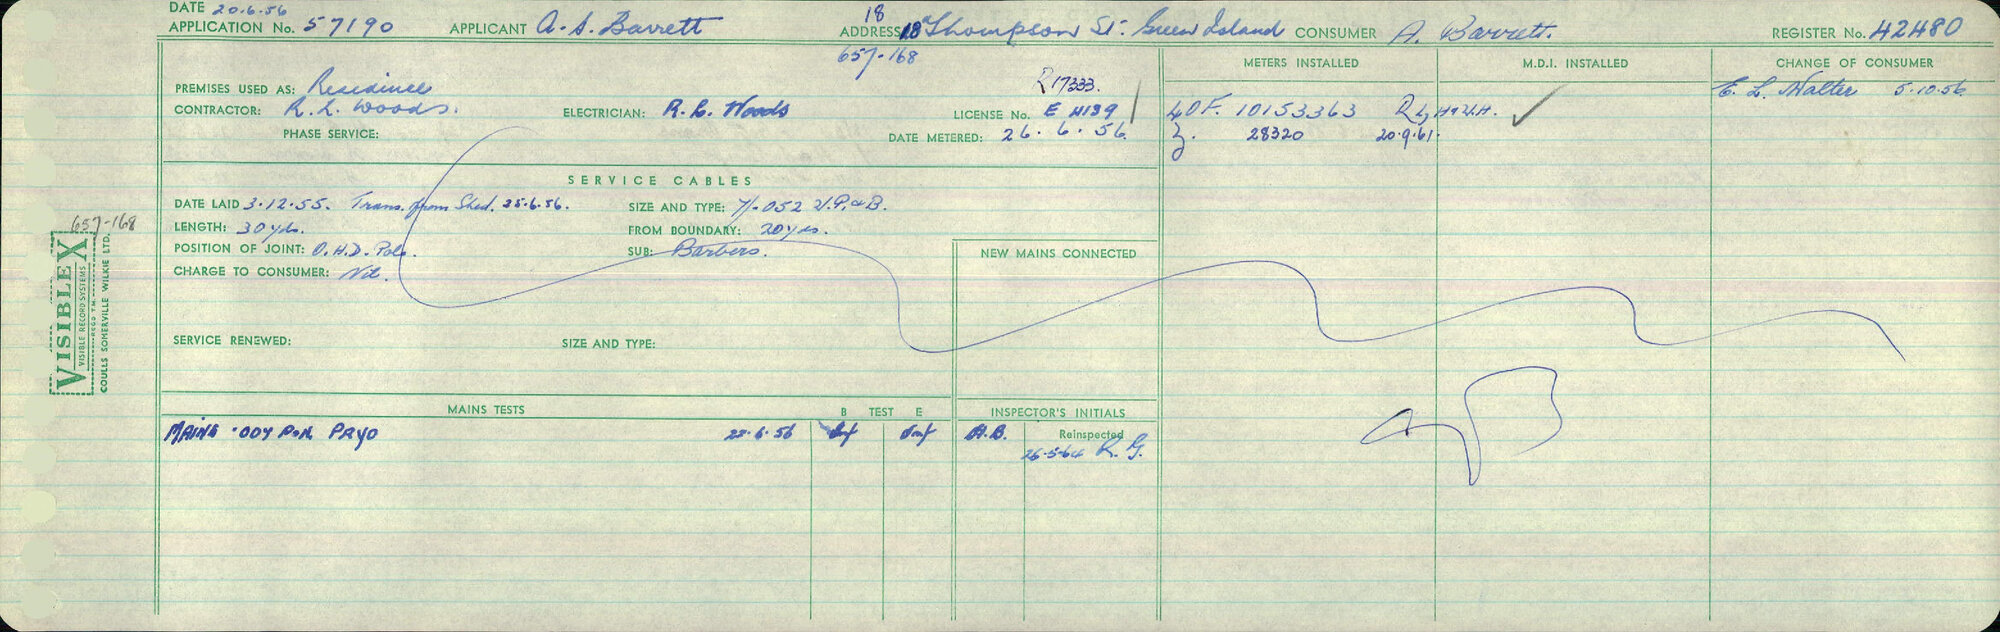 DATE 20.6.56
APPLICATION No. 57190 APPLICANT A. S. Barrett ADDRESS 18 18 Thompson St. Green Island CONSUMER A. Barrett. REGISTER No. 42480
657-168
METERS INSTALLED M.D.I. INSTALLED CHANGE OF CONSUMER
PREMISES USED AS: Residence R17333. E. L. Walter 5.10.56
CONTRACTOR: R. L. Woods. ELECTRICIAN: R. L. Woods LICENSE No. E 4139 40F. 10153363
PHASE SERVICE: DATE METERED: 26. 6. 56 28320 20.9.61.
SERVICE CABLES
DATE LAID 3.12.55. Trans. from Shed. 25.6.56. SIZE AND TYPE: 7/.052 V.P. & B.
LENGTH: 30 yds. FROM BOUNDARY: 20 yds.
POSITION OF JOINT: O.H.D. Pole. SUB: Barbers. NEW MAINS CONNECTED
CHARGE TO CONSUMER: Nil.
SERVICE RENEWED: SIZE AND TYPE:
MAINS TESTS B TEST E INSPECTOR'S INITIALS
MAINS .007 POR PAYO 25.6.56 Inf Inf A.B. Reinspected
26-5-64 R. G.
657-168
VISIBLEX
VISIBLE RECORD SYSTEMS
REGD T.M.
COULLS SOMERVILLE WILKIE LTD.